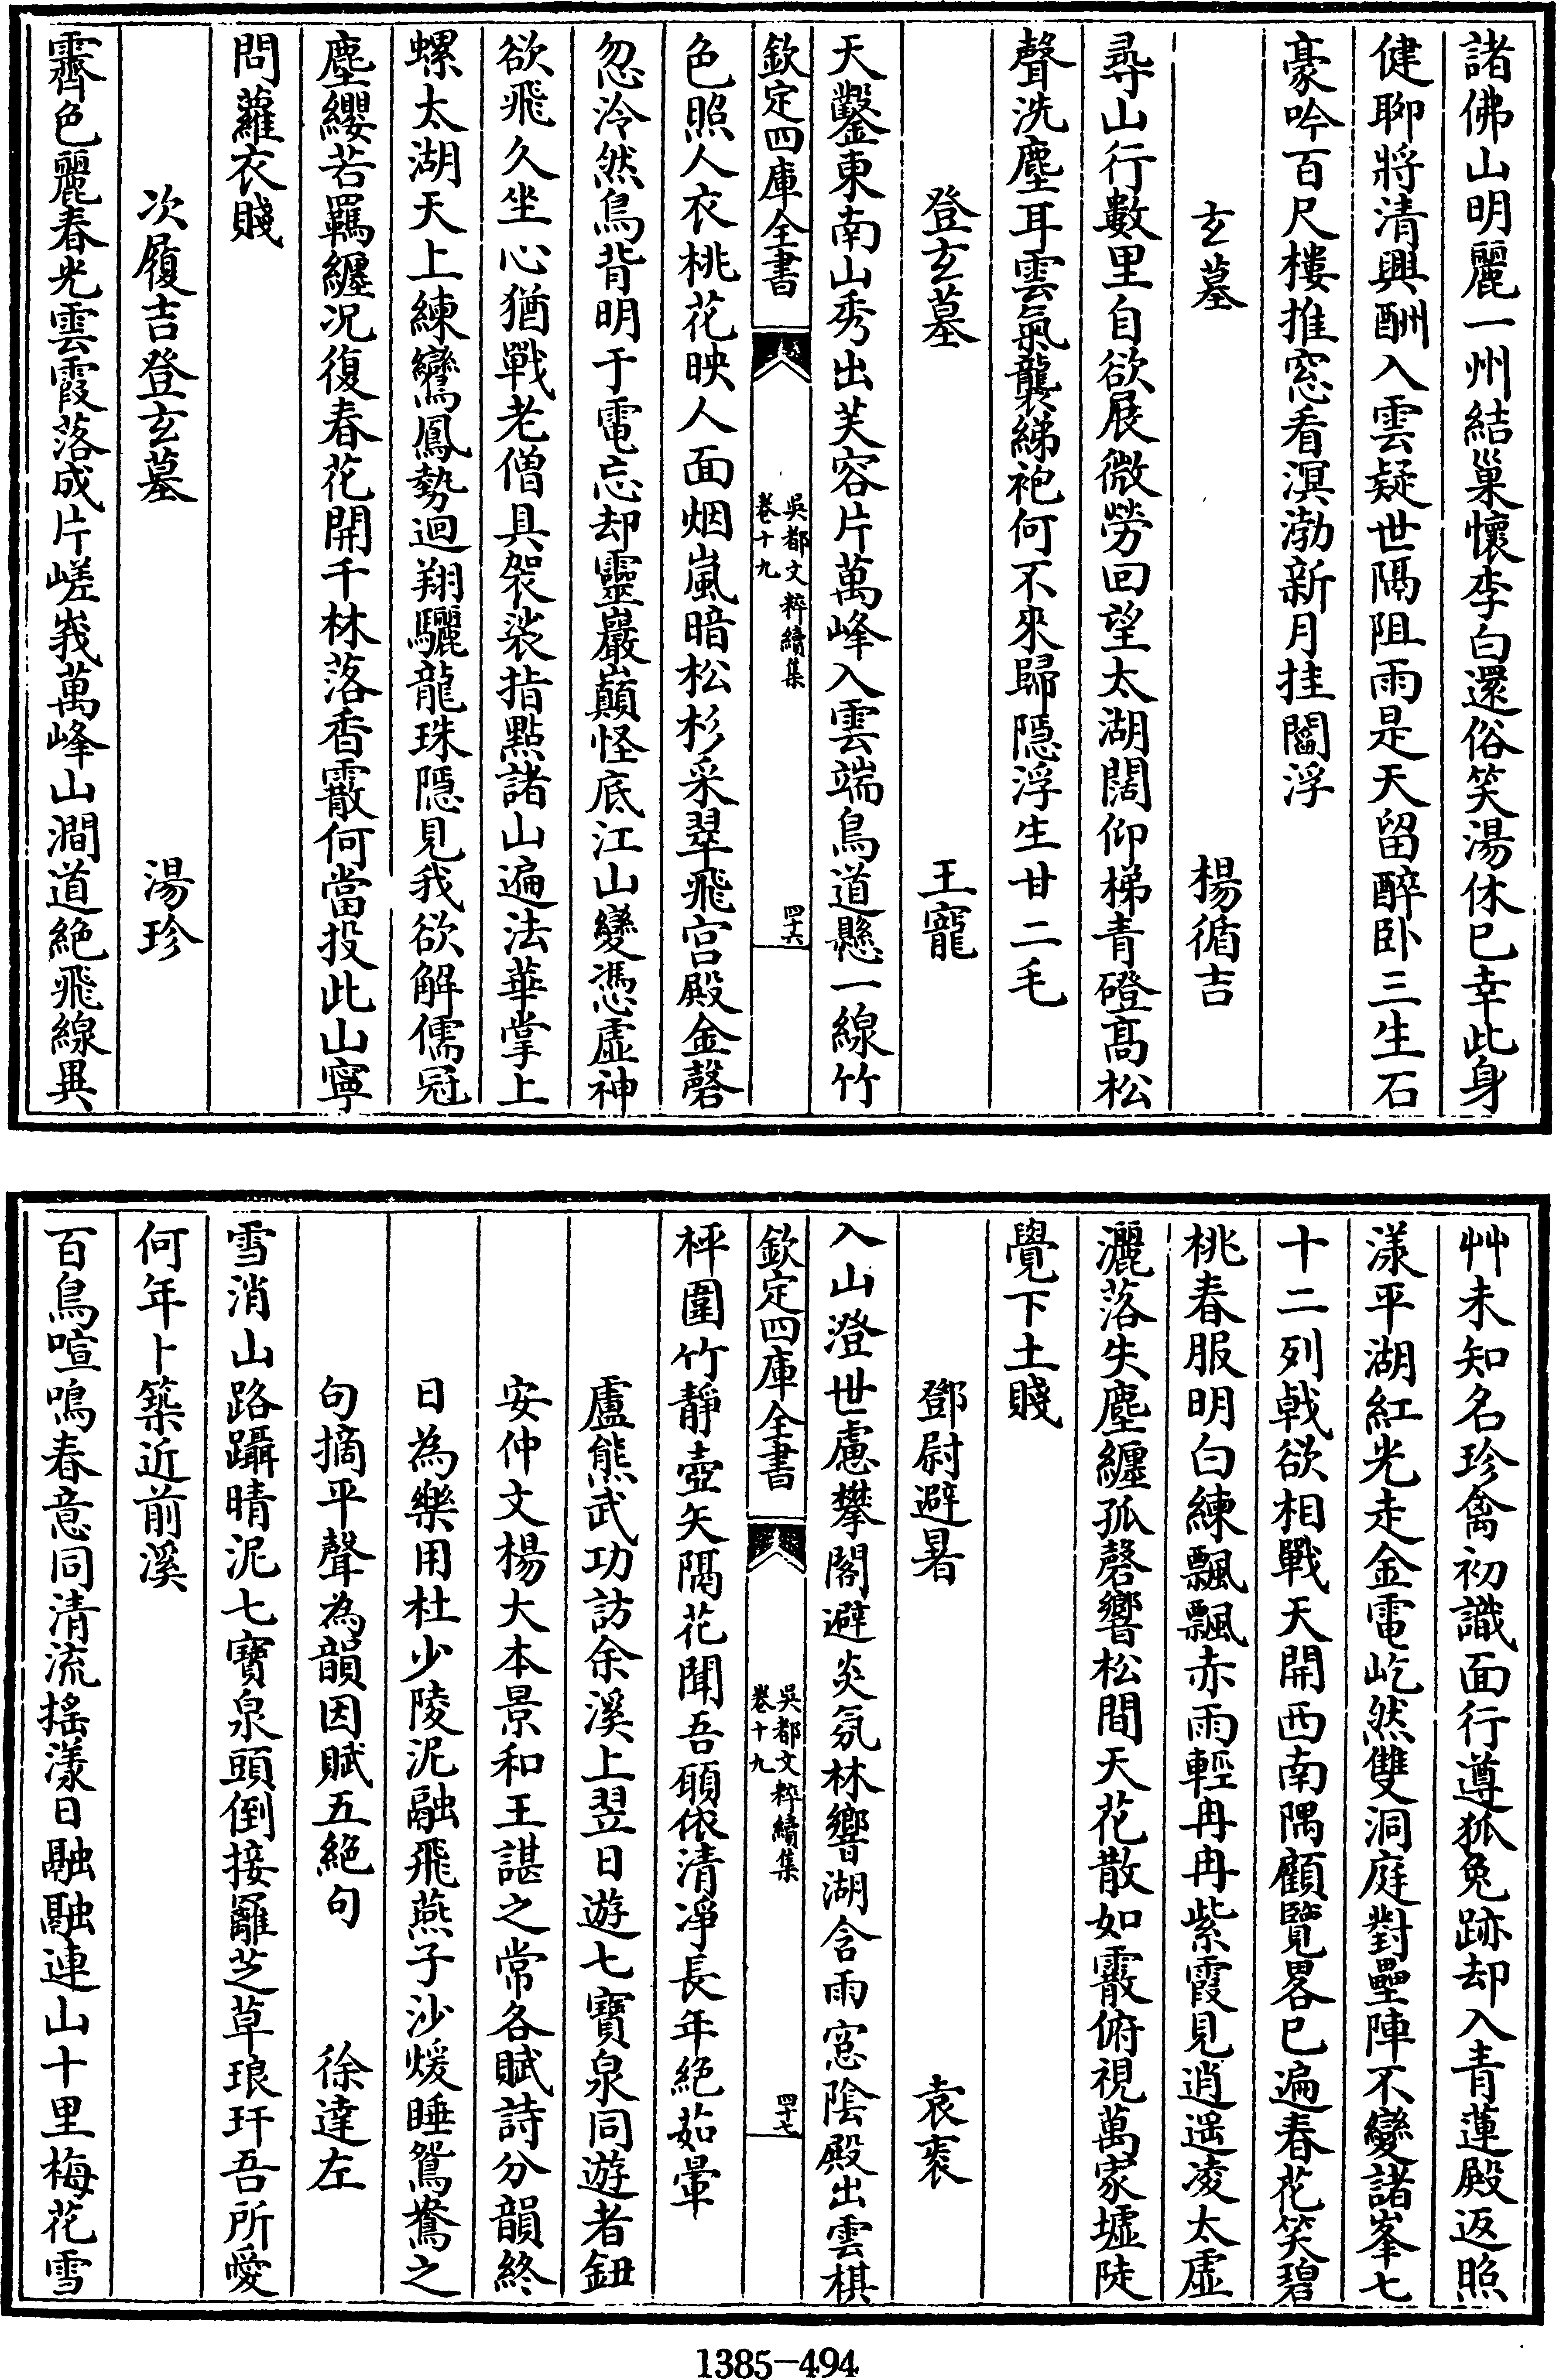 諸佛山明麗一州結巢懷李白還俗笑湯休已幸此身
健聊將清興酬入雲疑世隔阻雨是天留醉卧三生石
豪吟百尺樓推窓看溟渤新月挂閻浮
玄墓　楊循吉
尋山行數里自欲展微勞回望太湖闊仰梯青磴髙松
聲洗塵耳雲氣襲綈袍何不來歸隠浮生甘二毛
登玄墓　王寵
天鑿東南山秀出芙容片萬峰入雲端鳥道懸一線竹
欽定四庫全書　吳都文粹續集　卷十九　四十六
色照人衣桃花映人面烟嵐暗松杉采翠飛宫殿金磬
忽泠然鳥背明于電忘却靈巖巔怪底江山變憑虛神
欲飛久坐心猶戰老僧具袈裟指點諸山遍法華掌上
螺太湖天上練鸞鳳勢迴翔驪龍珠隠見我欲解儒冠
塵纓若羈纏况復春花開千林落香霰何當投此山寧
問蘿衣賤
次履吉登玄墓　湯珍
霽色麗春光雲霞落成片嵯峩萬峰山澗道絶飛線異
艸未知名珍禽初識面行遵狐兔跡却入青蓮殿返照
漾平湖紅光走金電屹然雙洞庭對壘陣不變諸峯七
十二列戟欲相戰天開西南隅顧覽畧已遍春花笑碧
桃春服明白練飄飄赤雨輕冉冉紫霞見逍遥凌太虛
灑落失塵纏孤磬響松間天花散如霰俯視萬家墟陡
覺下土賤
鄧尉避暑　袁袠
入山澄世慮攀閣避炎氛林響湖含雨窓陰殿出雲棋
欽定四庫全書　吳都文粹續集　卷十九　四十七
枰圍竹靜壺矢隔花聞吾願依清淨長年絶茹葷
盧熊武功訪余溪上翌日遊七寶泉同遊者鈕
安仲文楊大本景和王諶之常各賦詩分韻終
日為樂用杜少陵泥融飛燕子沙煖睡鴛鴦之
句摘平聲為韻因賦五絶句　徐達左
雪消山路躡晴泥七寶泉頭倒接䍦芝草琅玕吾所愛
何年卜築近前溪
百鳥喧鳴春意同清流揺漾日融融連山十里梅花雪
1385-494